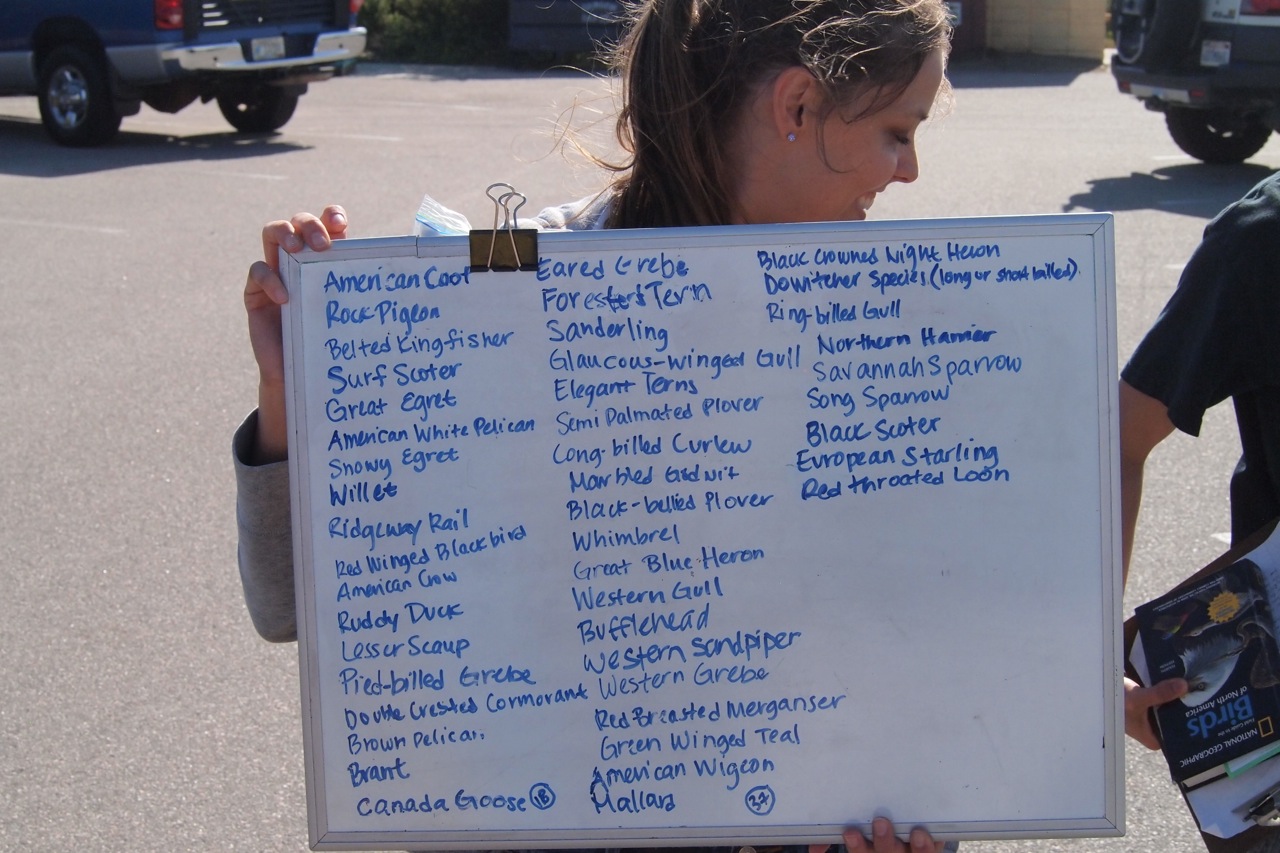 American Coot
Rock Pigeon
Belted Kingfisher
Surf Scoter
Great Egret
American White Pelican
Snowy Egret
Willet
Ridgeway Rail
Red Winged Blackbird
American Crow
Ruddy Duck
Lesser Scaup
Pied-billed Grebe
Double Crested Cormorant
Brown Pelican
Brant
Canada Goose 18
Eared Grebe
Foresters Tern
Sanderling
Glaucous-winged Gull
Elegant Terns
Semi Palmated Plover
Long-billed Curlew
Marbled Godwit
Black-bellied Plover
Whimbrel
Great Blue Heron
Western Gull
Bufflehead
Western Sandpiper
Western Grebe
Red Breasted Merganser
Green Winged Teal
American Wigeon
Mallard 37
Black Crowned Night Heron
Dowitcher Species (long or short billed)
Ring-billed Gull
Northern Harrier
Savannah Sparrow
Song Sparrow
Black Scoter
European Starling
Red throated Loon
NATIONAL GEOGRAPHIC
Field Guide to the
Birds
of North America